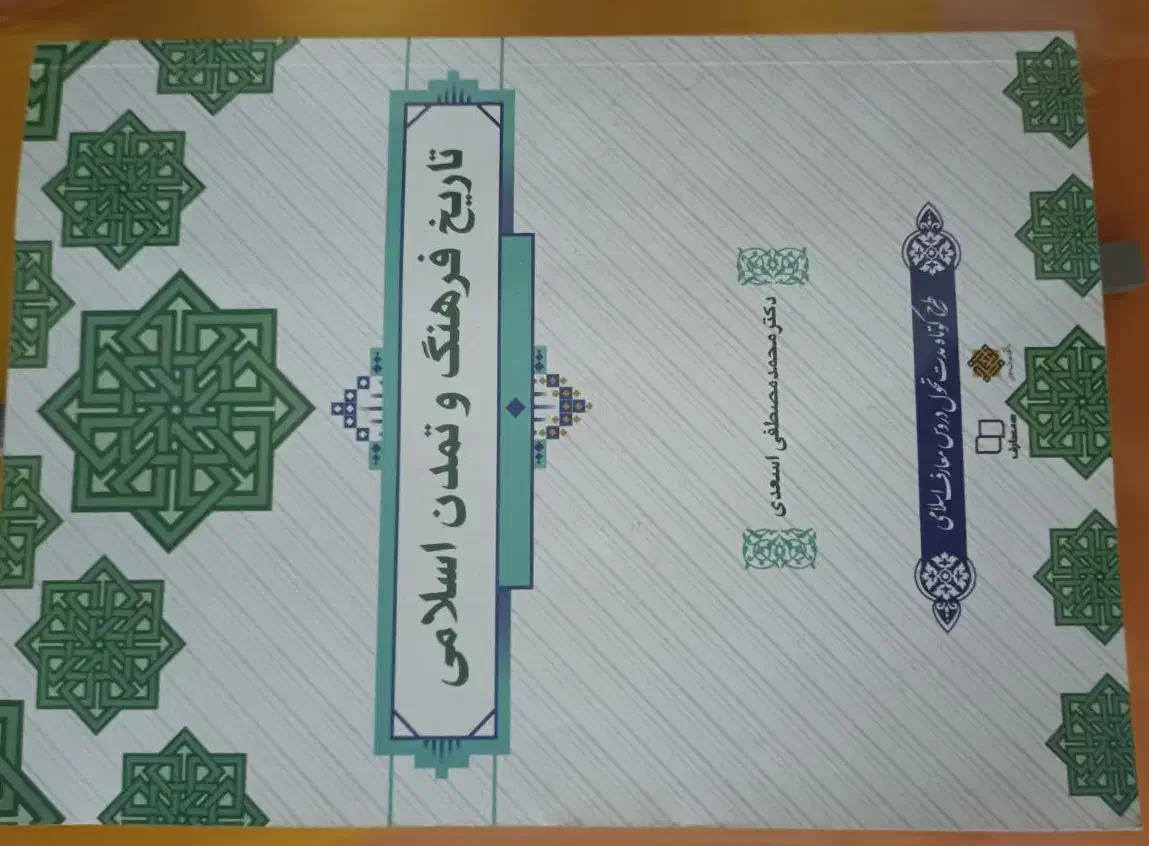 تاریخ فرهنگ و تمدن اسلامی
دکتر محمد مصطفی اسعدی
طرح کوتاه مدت تحول دروس معارف اسلامی
معارف